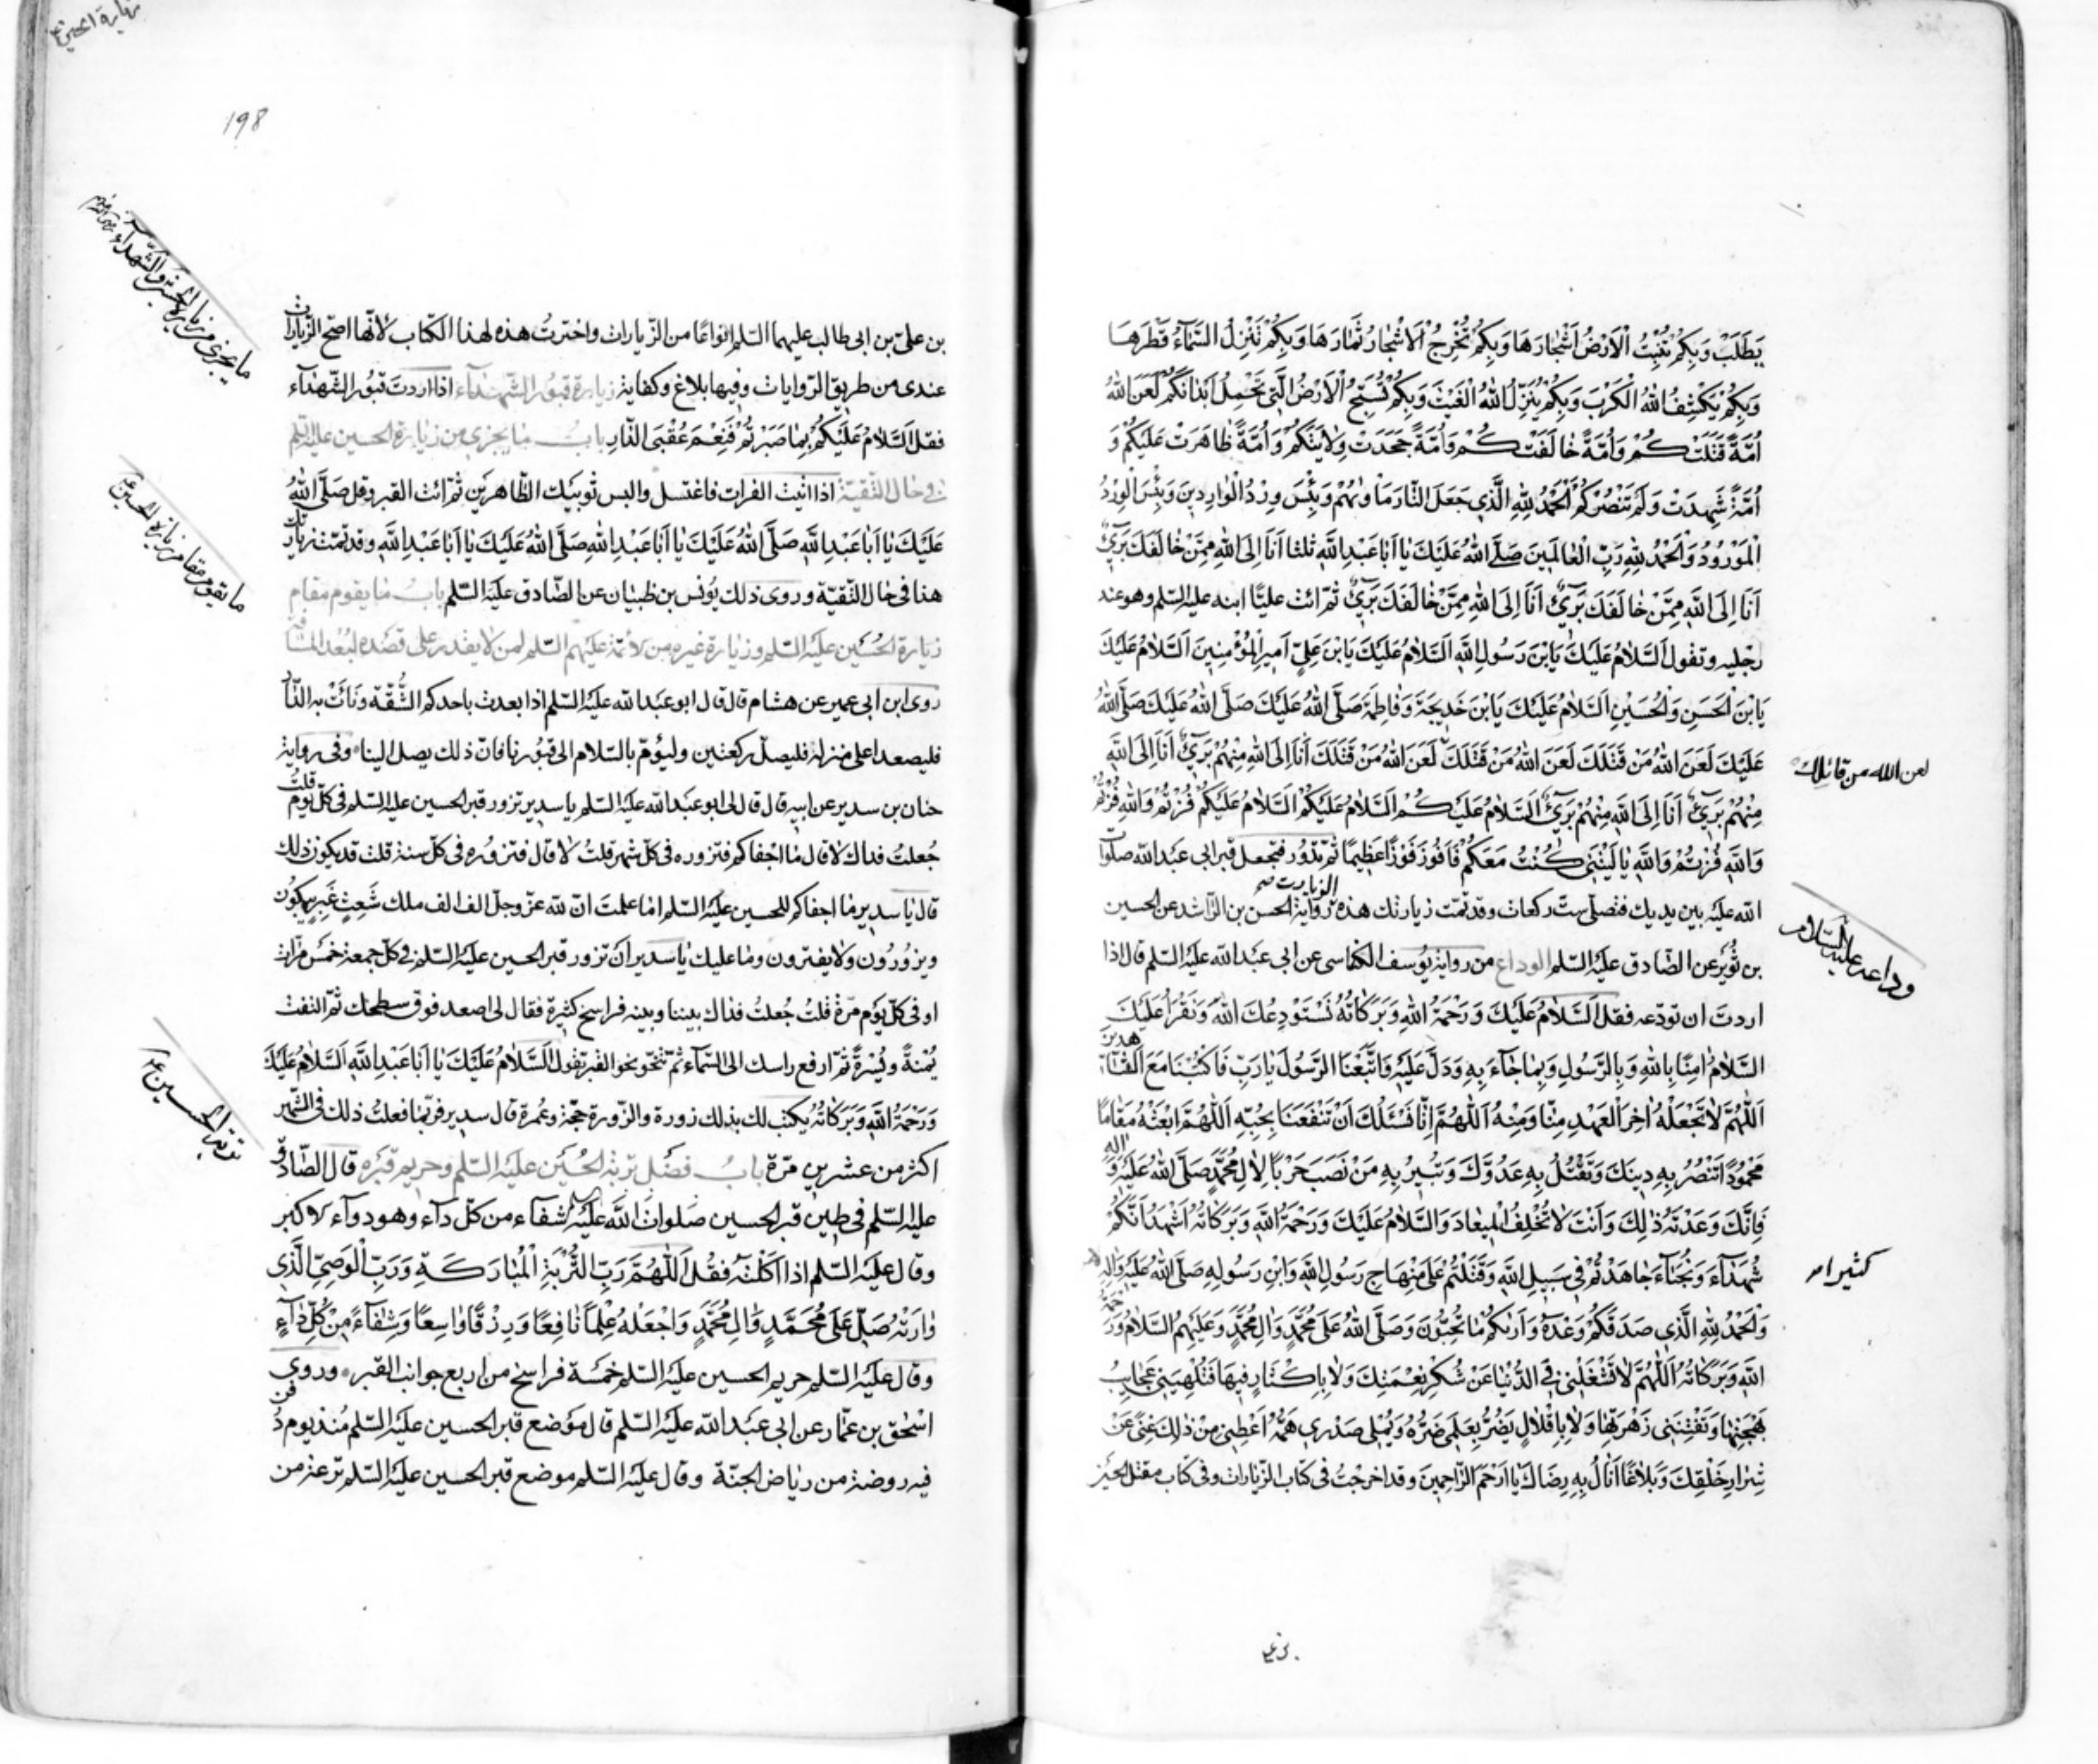 يَطْلُبُ وَبِكُمْ تُنْبِتُ الْاَرْضُ اَشْجٰارَهَا وَبِكُمْ تُخْرِجُ الْاَشْجٰارُ ثِمٰارَهَا وَبِكُمْ تُنْزِلُ السَّمٰآءُ قَطْرَهٰا
وَبِكُمْ يَكْشِفُ اللهُ الْكَرْبَ وَبِكُمْ يُنَزِّلُ اللهُ الْغَيْثَ وَبِكُمْ تُسَبِّحُ الْاَرْضُ الَّتِي تَحْمِلُ اَبْدٰانَكُمْ لَعَنَ اللهُ
اُمَّةً قَتَلَتْكُمْ وَاُمَّةً خٰالَفَتْكُمْ وَاُمَّةً جَحَدَتْ وِلٰايَتَكُمْ وَاُمَّةً ظٰاهَرَتْ عَلَيْكُمْ وَ
اُمَّةً شَهِدَتْ وَلَمْ تَنْصُرْكُمْ اَلْحَمْدُ لِلّٰهِ الَّذِي جَعَلَ النّٰارَ مَاْوٰيهُمْ وَبِئْسَ وِرْدُ الْوٰارِدِينَ وَبِئْسَ الْوِرْدُ
الْمَوْرُودُ وَالْحَمْدُ لِلّٰهِ رَبِّ الْعٰالَمِينَ صَلَّى اللهُ عَلَيْكَ يٰا اَبٰا عَبْدِ اللّٰهِ ثلثا اَنَا اِلَى اللهِ مِمَّنْ خٰالَفَكَ بَرِيٌ
اَنَا اِلَى اللّٰهِ مِمَّنْ خٰالَفَكَ بَرِيٌ اَنَا اِلَى اللهِ مِمَّنْ خٰالَفَكَ بَرِيٌ ثمّ ائت عليّا ابنه عليه السّلم وهو عند
رجليه وتقول اَلسَّلٰامُ عَلَيْكَ يَابْنَ رَسُولِ اللّٰهِ اَلسَّلٰامُ عَلَيْكَ يَابْنَ عَلِيٍّ اَمِيرِ الْمُؤْمِنِينَ اَلسَّلٰامُ عَلَيْكَ
يَابْنَ الْحَسَنِ وَالْحُسَيْنِ اَلسَّلٰامُ عَلَيْكَ يَابْنَ خَدِيجَةَ وَفٰاطِمَةَ صَلَّى اللهُ عَلَيْكَ صَلَّى اللهُ عَلَيْكَ صَلَّى اللهُ
عَلَيْكَ لَعَنَ اللهُ مَنْ قَتَلَكَ لَعَنَ اللهُ مَنْ قَتَلَكَ لَعَنَ اللهُ مَنْ قَتَلَكَ اَنَا اِلَى اللهِ مِنْهُمْ بَرِيٌ اَنَا اِلَى اللّٰهِ
لعن الله من قاتلك
مِنْهُمْ بَرِيٌ اَنَا اِلَى اللّٰهِ مِنْهُمْ بَرِيٌ اَلسَّلٰامُ عَلَيْكُمْ اَلسَّلٰامُ عَلَيْكُمْ اَلسَّلٰامُ عَلَيْكُمْ فُزْتُمْ وَاللهِ فُزْتُمْ
وَاللّٰهِ فُزْتُمْ وَاللّٰهِ يٰا لَيْتَنِي كُنْتُ مَعَكُمْ فَاَفُوزَ فَوْزًا عَظِيمًا ثمّ تدور فتجعل قبر ابي عبد الله صلوات
الله عليه بين يديك فتصلّي ستّ ركعات وقد تمّت زيارتك هذه الزيارت برواية الحسن بن الرّاشد عن الحسين
بن ثوير عن الصّادق عليه السّلم الوداع من رواية يوسف الكناسي عن ابي عبد الله عليه السّلم قال اذا
وداعه عليه السّلام
اردتَ ان تودّعه فقل اَلسَّلٰامُ عَلَيْكَ وَرَحْمَةُ اللهِ وَبَرَكٰاتُهُ نَسْتَوْدِعُكَ اللهَ وَنَقْرَأُ عَلَيْكَ
السَّلٰامَ اٰمَنّٰا بِاللهِ وَبِالرَّسُولِ وَبِمٰا جٰآءَ بِهِ وَدَلَّ عَلَيْهِ وَاتَّبَعْنَا الرَّسُولَ يٰا رَبِّ فَاكْتُبْنٰا مَعَ الشّٰاهدين
اَللّٰهُمَّ لٰا تَجْعَلْهُ اٰخِرَ الْعَهْدِ مِنّٰا وَمِنْهُ اَللّٰهُمَّ اِنّٰا نَسْئَلُكَ اَنْ تَنْفَعَنٰا بِحُبِّهِ اَللّٰهُمَّ ابْعَثْهُ مَقٰامًا
مَحْمُودًا تَنْصُرُ بِهِ دِينَكَ وَتَقْتُلُ بِهِ عَدُوَّكَ وَتُبِيرُ بِهِ مَنْ نَصَبَ حَرْبًا لِاٰلِ مُحَمَّدٍ صَلَّى اللهُ عَلَيْهِ وَاله
فَاِنَّكَ وَعَدْتَهُ ذٰلِكَ وَاَنْتَ لٰا تُخْلِفُ الْمِيعٰادَ وَالسَّلٰامُ عَلَيْكَ وَرَحْمَةُ اللّٰهِ وَبَرَكٰاتُهُ اَشْهَدُ اَنَّكُمْ
شُهَدٰآءُ وَنُجَبٰآءُ جٰاهَدْتُمْ فِي سَبِيلِ اللّٰهِ وَقُتِلْتُمْ عَلٰى مِنْهٰاجِ رَسُولِ اللّٰهِ وَابْنِ رَسُولِهِ صَلَّى اللهُ عَلَيْهِ وَاٰلِهِ
كثيرا
وَالْحَمْدُ لِلّٰهِ الَّذِي صَدَقَكُمْ وَعْدَهُ وَاَرٰيكُمْ مٰا تُحِبُّونَ وَصَلَّى اللهُ عَلٰى مُحَمَّدٍ وَاٰلِ مُحَمَّدٍ وَعَلَيْهِمُ السَّلٰامُ وَرَحْمَةُ
اللّٰهِ وَبَرَكٰاتُهُ اَللّٰهُمَّ لٰا تَشْغَلْنِي فِي الدُّنْيٰا عَنْ شُكْرِ نِعْمَتِكَ وَلٰا بِاِكْثٰارٍ فِيهٰا فَتُلْهِيَنِي عَجٰايِبُ
بَهْجَتِهٰا وَتَفْتِنَنِي زَهْرَتُهٰا وَلٰا بِاِقْلٰالٍ يَضُرُّ بِعَمَلِي ضَرُّهُ وَيَمْلَأُ صَدْرِي هَمُّهُ اَعْطِنِي مِنْ ذٰلِكَ غِنًى عَنْ
شِرٰارِ خَلْقِكَ وَبَلٰاغًا اَنٰالُ بِهِ رِضٰاكَ يٰا اَرْحَمَ الرّٰاحِمِينَ وقد اخرجتُ في كتاب الزّيارات وفي كتاب مقتل الحسين
198
بن عليّ بن ابي طالب عليهما السّلم انواعًا من الزّيارات واخترتُ هذه لهذا الكتاب لانّها اصحّ الزّيارات
ما يجزي من زيارة الحسين والشهداء
عندي من طريق الرّوايات وفيها بلاغ وكفاية زيارة قبور الشّهدآء اذا اردتَ قبور الشّهدآء
فقل اَلسَّلٰامُ عَلَيْكُمْ بِمٰا صَبَرْتُمْ فَنِعْمَ عُقْبَى الدّٰارِ باب ما يجزي من زيارة الحسين عليه السّلم
في حال التّقيّة اذا اتيت الفرات فاغتسل والبس ثوبيك الطّاهرين ثمّ ائت القبر وقل صَلَّى اللهُ
عَلَيْكَ يٰا اَبٰا عَبْدِ اللّٰهِ صَلَّى اللهُ عَلَيْكَ يٰا اَبٰا عَبْدِ اللهِ صَلَّى اللهُ عَلَيْكَ يٰا اَبٰا عَبْدِ اللّٰهِ وقد تمّت زيارتك
هذا في حال التّقيّة وروى ذلك يونس بن ظبيان عن الصّادق عليه السّلم باب ما يقوم مقام
ما يقوم مقام زيارة الحسين ع
زيارة الحسين عليه السّلم وزيارة غيره من الائمّة عليهم السّلم لمن لا يقدر على قصده لبُعد المسافة
روى ابن ابي عمير عن هشام قال قال ابو عبد الله عليه السّلم اذا بعدت باحدكم الشُّقّة ونَاَتْ به الدّار
فليصعد اعلى منزله فليصلّ ركعتين وليؤمّ بالسّلام الى قبورنا فانّ ذلك يصل الينا وفي رواية
حنان بن سدير عن ابيه قال قال لي ابو عبد الله عليه السّلم يا سدير تزور قبر الحسين عليه السّلم في كلّ يوم قلتُ
جُعلتُ فداك لا قال ما اجفاكم فتزوره في كلّ شهر قلتُ لا قال فتزوره في كلّ سنة قلت قد يكون ذلك
قال يا سدير ما اجفاكم للحسين عليه السّلم اما علمتَ انّ لله عزّ وجلّ الف الف ملك شَعِثٍ غَبِرٍ يبكون
ويزورون ولا يفترون وما عليك يا سدير ان تزور قبر الحسين عليه السّلم في كلّ جمعة خمس مرّات
او في كلّ يوم مرّة قلتُ جُعلتُ فداك بيننا وبينه فراسخ كثيرة فقال لي اصعد فوق سطحك ثمّ التفت
يُمْنةً ويُسْرةً ثمّ ارفع راسك الى السّماء ثمّ تنحّو نحو القبر تقول اَلسَّلٰامُ عَلَيْكَ يٰا اَبٰا عَبْدِ اللّٰهِ اَلسَّلٰامُ عَلَيْكَ
وَرَحْمَةُ اللّٰهِ وَبَرَكٰاتُهُ يكتب لك بذلك زورة والزّورة حجّة وعُمرة قال سدير فربّما فعلتُ ذلك في الشّهر
تربة الحسين ع
اكثر من عشرين مرّة باب فضل تربة الحسين عليه السّلم وحريم قبره قال الصّادق
عليه السّلم في طين قبر الحسين صلوات الله عليه شفاء من كلّ دآء وهو دوآء لاكبر
وقال عليه السّلم اذا اكلته فقل اَللّٰهُمَّ رَبَّ التُّرْبَةِ الْمُبٰارَكَةِ وَرَبَّ الْوَصِيِّ الَّذِي
وٰارَتْهُ صَلِّ عَلٰى مُحَمَّدٍ وَاٰلِ مُحَمَّدٍ وَاجْعَلْهُ عِلْمًا نٰافِعًا وَرِزْقًا وٰاسِعًا وَشِفٰآءً مِنْ كُلِّ دٰآءٍ
وقال عليه السّلم حريم الحسين عليه السّلم خمسة فراسخ من اربع جوانب القبر وروى
اسحق بن عمّار عن ابي عبد الله عليه السّلم قال موضع قبر الحسين عليه السّلم مُنذ يوم دُفن
فيه روضة من رياض الجنّة وقال عليه السّلم موضع قبر الحسين عليه السّلم ترعة من